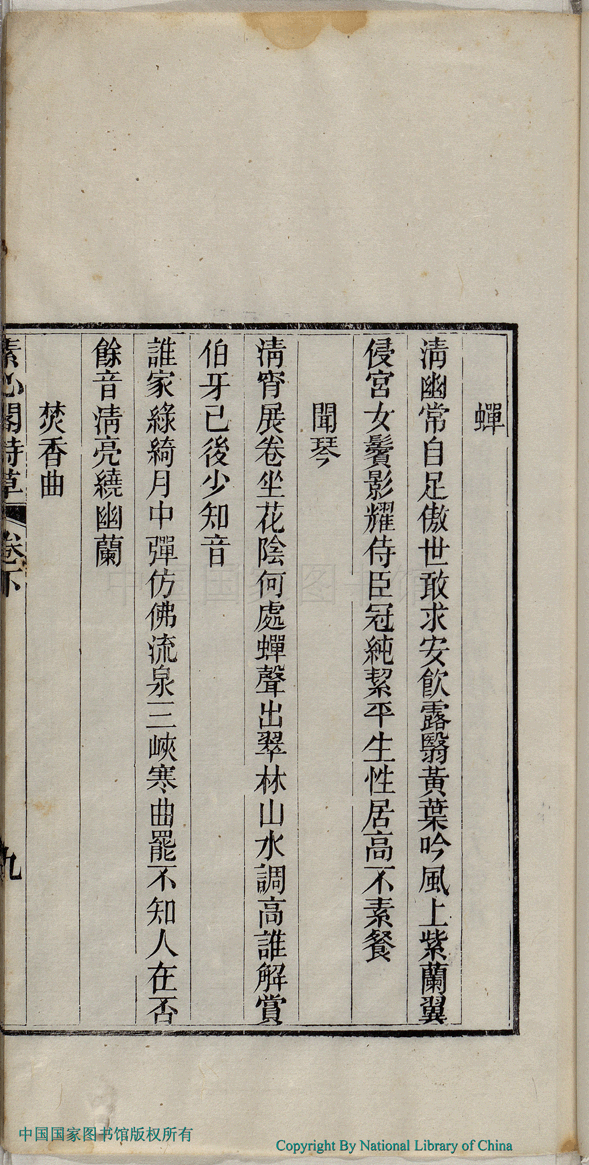 蟬
淸幽常自足傲世敢求安飮露翳黃葉吟風上紫蘭翼
侵宮女鬢影耀侍臣冠純絜平生性居高不素餐
聞琴
淸宵展卷坐花陰何處蟬聲出翠林山水調高誰解賞
伯牙已後少知音
誰家綠綺月中彈仿佛流泉三峽寒曲罷不知人在否
餘音淸亮繞幽蘭
焚香曲
素心閣詩草 卷下 九
中国国家图书馆
中国国家图书馆版权所有
Copyright By National Library of China